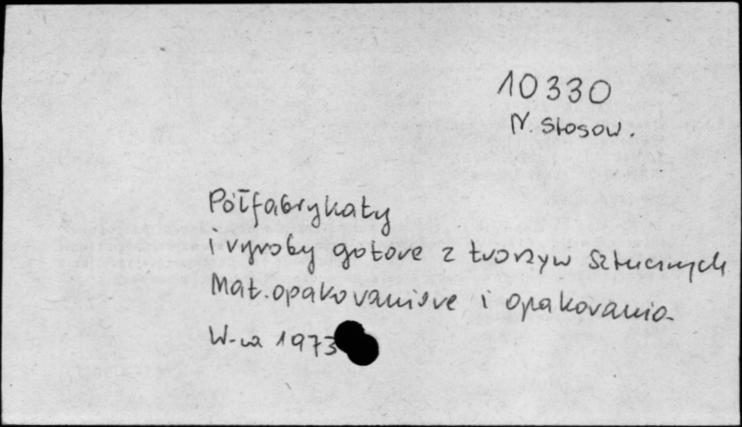 10330
N. Stosow.
Półfabrykaty
i wyroby gotowe z tworzyw sztucznych
Mat. opakowaniowe i opakowania.
W-wa 1973